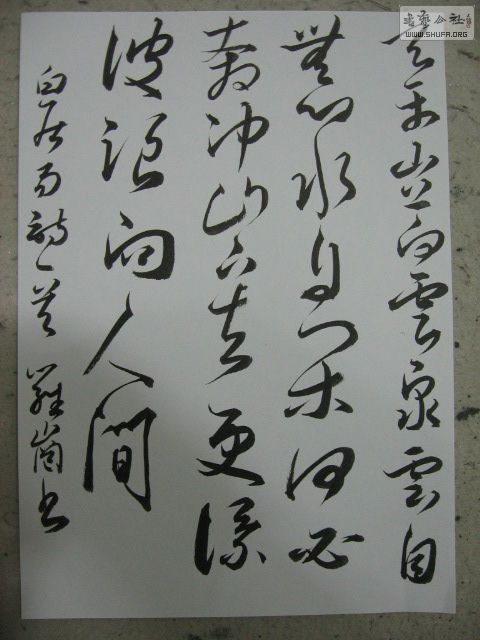 天平山上白雲泉雲自
無心水自闲何必
奔冲山下去更添
波浪向人間
白居易詩一首 羅崗书
書藝公社
WWW.SHUFA.ORG